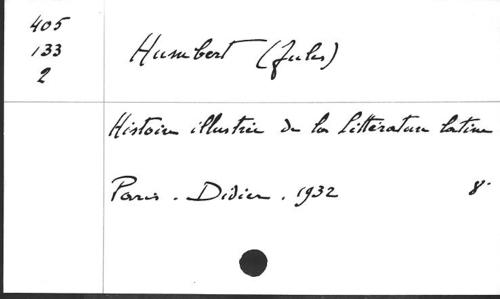 405
133
2
Humbert (Jules)
Histoire illustrée de la Littérature latine
Paris. Didier. 1932 8°